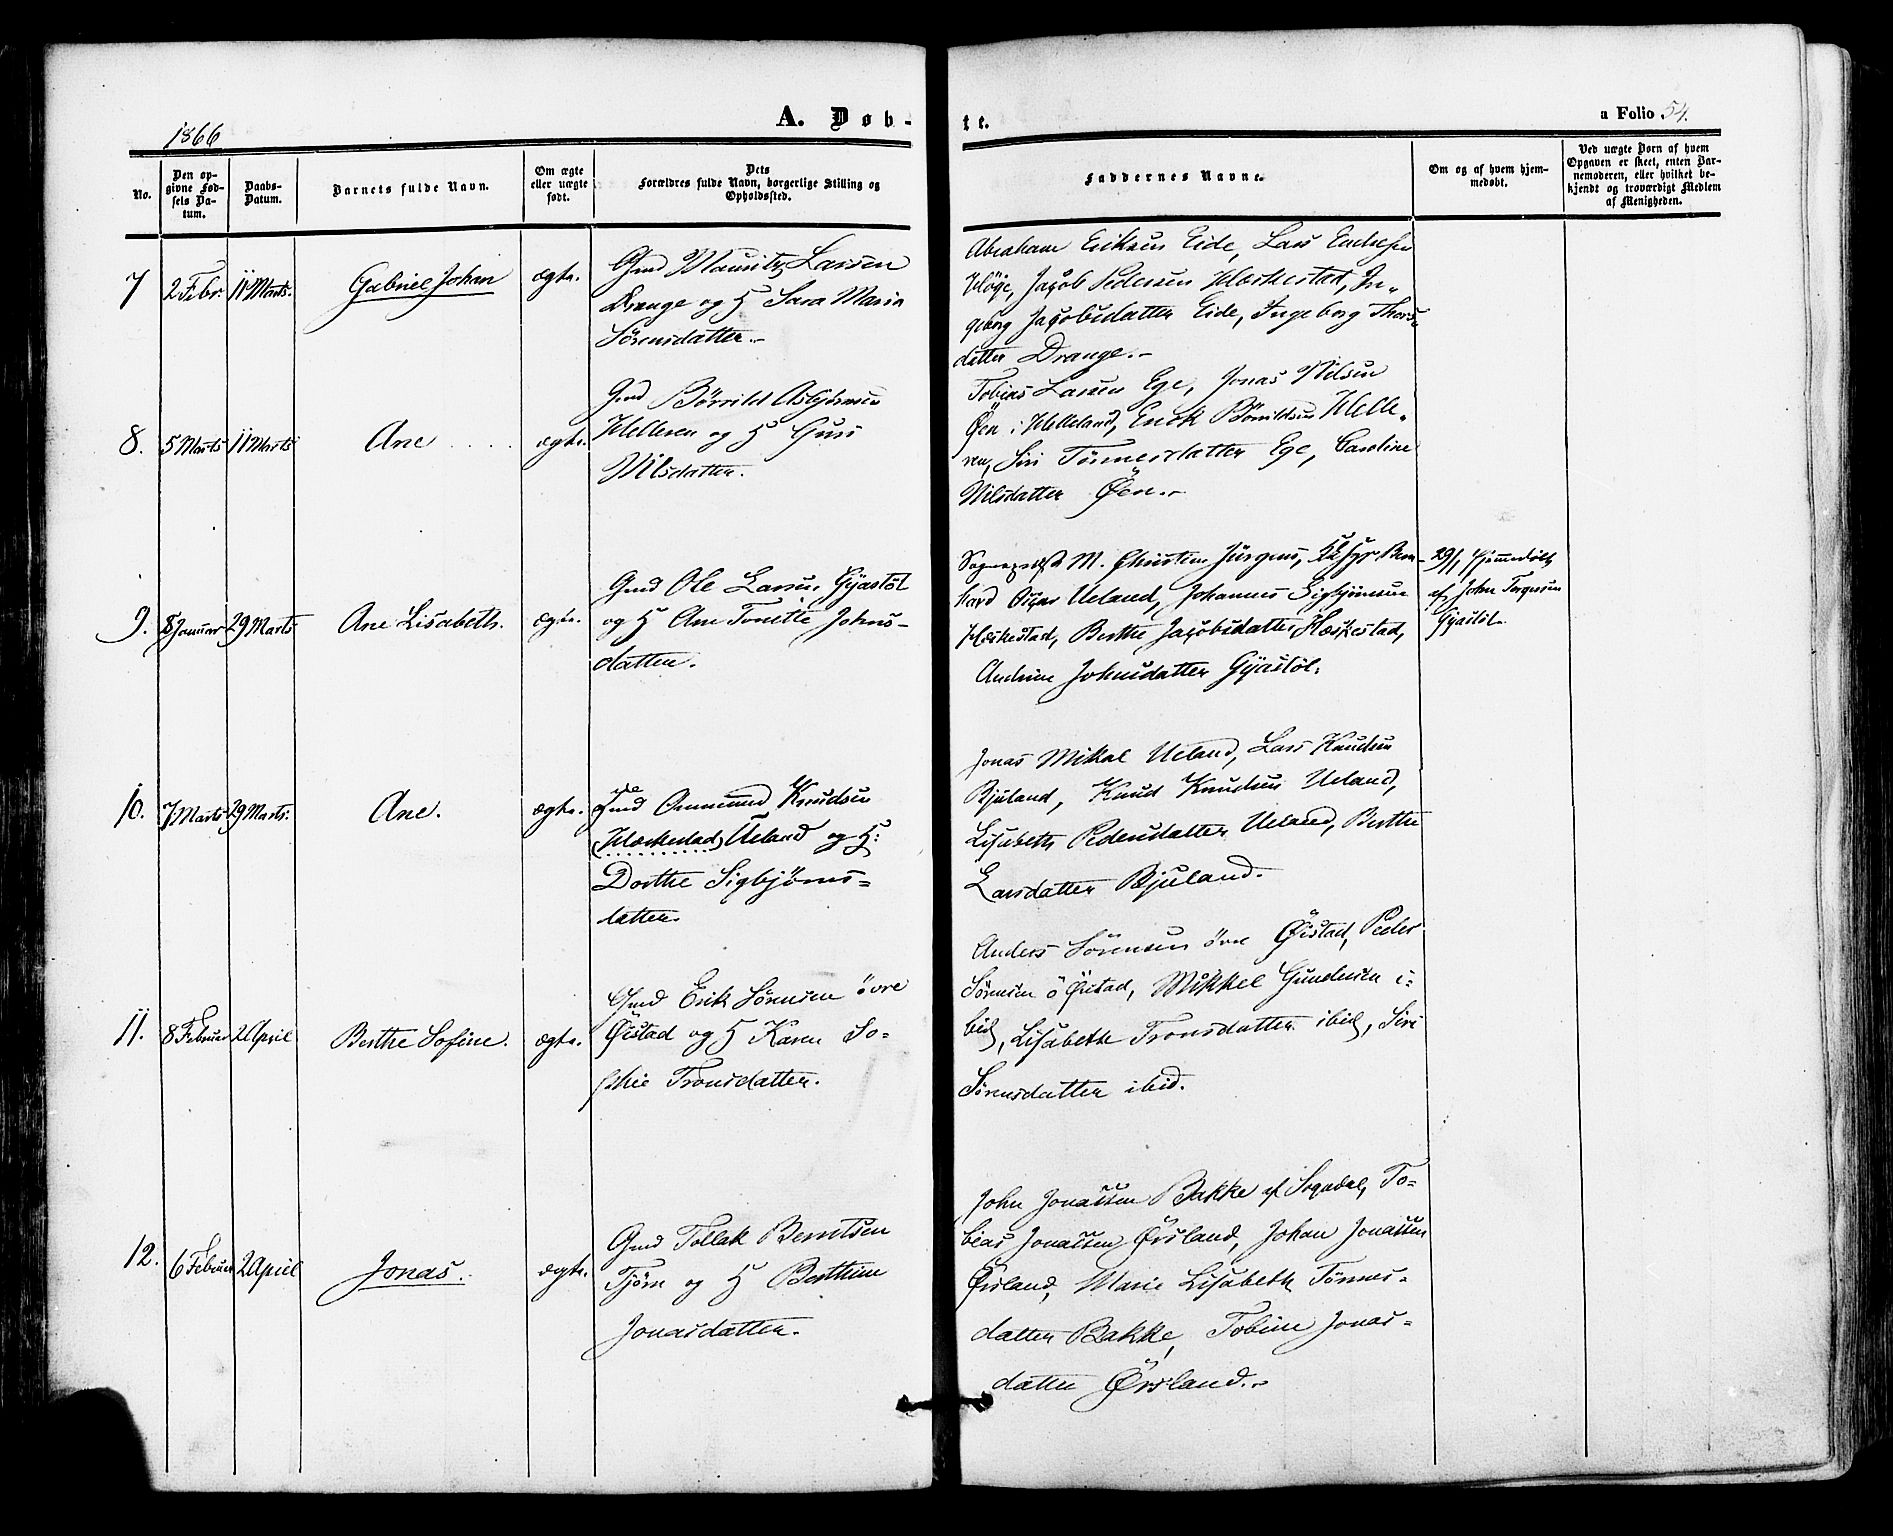 1866
A. Døb-
te.
a Folio 54.
No.
Den op-
givne Fød-
sels Da-
tum.
Daabs-
Datum.
Barnets fulde Navn.
Om ægte
eller uægte
født.
Dets
Forældres fulde Navn, borgerlige Stilling og
Opholdssted.
Faddernes Navne.
Om og af hvem hjem-
medøbt.
Ved uægte Børn af hvem
Opgaven er skeet, enten Bar-
nemoderen, eller hvilket be-
kjendt og troværdigt Medlem
af Menigheden.
7
2 Febr.
11 Marts.
Gabriel Johan
ægte.
Gmd Mauritz Larsen
Drange og H Sara Maria
Sörensdatter.-
Abraham Eriksen Eide, Lars
Höge, Jacob Pedersen Heskestad, In-
geborg Jacobsdatter Eide, Ingeborg Thors-
datter Drange.-
8.
5 Marts
11 Marts
Ane
ægte.
Gmd Börrild Asbjörnsen
Helleren og H Guri
Nilsdatter.
Tobias Larsen Ege, Jonas Nilsen
Øen i Helleland, Erick Börrildsen Helle-
ren, Siri Tönnesdatter Ege, Caroline
Nilsdatter Øen.-
9.
8 Januar
29 Marts
Ane Lisabeth.
ægte.
Gmd Ole Larsen Gyastöl
og H Ane Tonette Johns-
datter.
M. Christen Jürgens, Bern-
hard Oscar Ueland, Johannes Sigbjörnsen
Heskestad, Berthe Jacobsdatter Heskestad,
Andrine Johnsdatter Gyastöl.
29/1 Hjemmedöbt
af John Torgersen
Gyastöl.
10.
7 Marts
29 Marts.
Ane.
ægte.
Gmd Ommund Knudsen
(Heskestad) Ueland og H:
Dorthe Sigbjörns-
datter.
Jonas Mikal Ueland, Lars Knudsen
Bjuland, Knud Knudsen Ueland,
Lisabeth Pedersdatter Ueland, Berthe
Larsdatter Bjuland.
11.
8 Februar
2 April
Berthe Sofine.
ægte.
Gmd Erik Sörensen övre
Øistad og H Karen So-
phie Tronsdatter.
Anders Sörensen övre Øistad, Peder
Sörensen ö Øistad, Mikkel Gundersen i-
bid, Lisabeth Tronsdatter ibid, Siri
Sörensdatter ibid.
12.
6 Februar
2 April
Jonas.
ægte.
Gmd Tollak Berntsen
Tjörn og H Berthine
Jonasdatter.
John Jonassen Bakke af Sogndal, To-
bias Jonassen Örsland, Johan Jonassen
Örsland, Marie Lisabeth Tönnes-
datter Bakke, Tobine Jonas-
datter Örsland.-